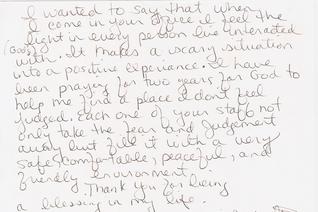 I wanted to say that when
I come in your office I feel the
light in every person I've interacted
(Good)
with. It makes a scary situation
into a positive experience. I have
been praying for two years for God to
help me find a place I don't feel
judged. Each one of your staff not
only take the fear and judgement
away but fill it with a very
safe, comfortable, peaceful, and
friendly environment.
Thank you for being
a blessing in my life.